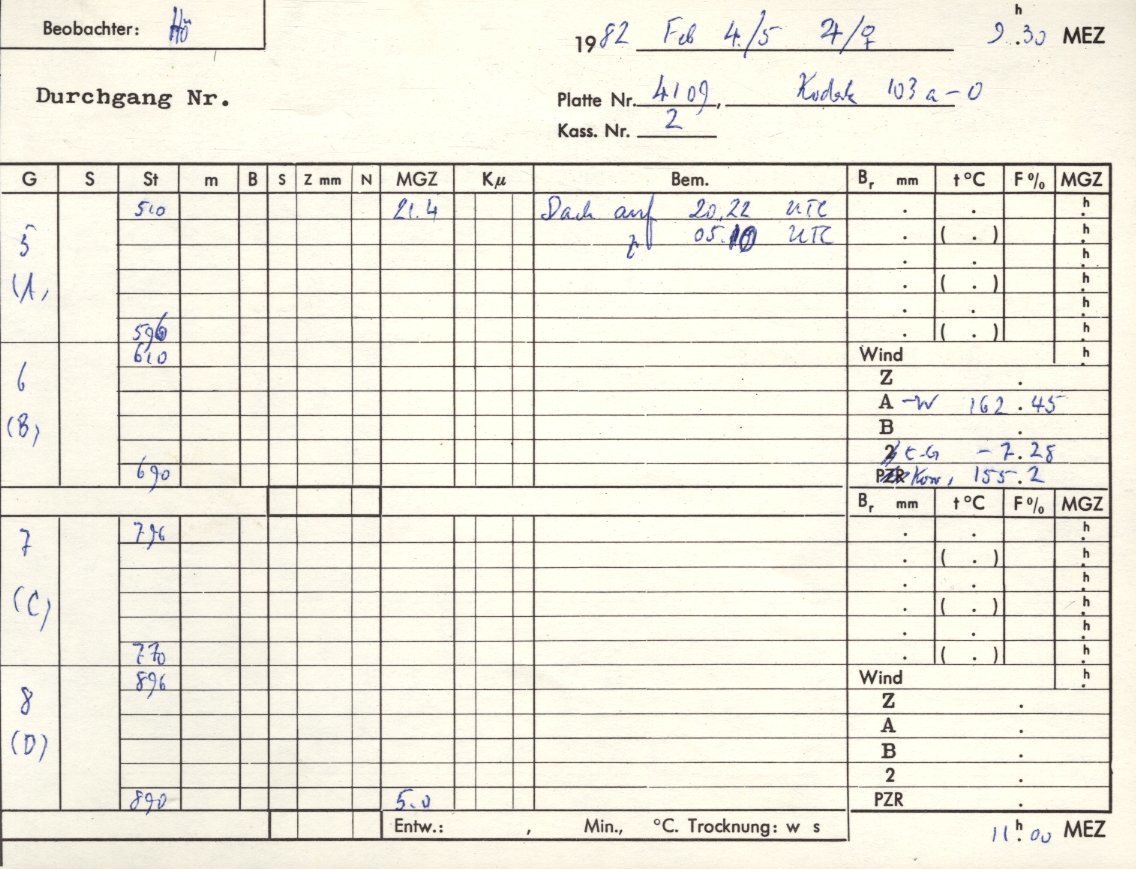 Beobachter: Hö
1982 Feb 4./5 ♃/♀ 9 h .30 MEZ
Durchgang Nr.
Platte Nr. 4109, Kodak 103a-O
Kass. Nr. 2
G S St m B S Z mm N MGZ Kμ Bem. Br mm t °C F % MGZ
5 510 21.4 Dach auf 20.22 UTC . . h
z 05.10 UTC . ( . ) h
(A) . . h
. ( . ) h
. . h
596 . ( . ) h
6 610 Wind h
Z .
A -W 162.45
(B) B .
2 E-G -7.28
690 PZR Korr, 155.2
Br mm t °C F % MGZ
7 796 . . h
. ( . ) h
. . h
(C) . ( . ) h
. . h
770 . ( . ) h
8 896 Wind h
Z .
(D) A .
B .
2 .
890 5.0 PZR .
Entw.: , Min., °C. Trocknung: w s
11 h .00 MEZ